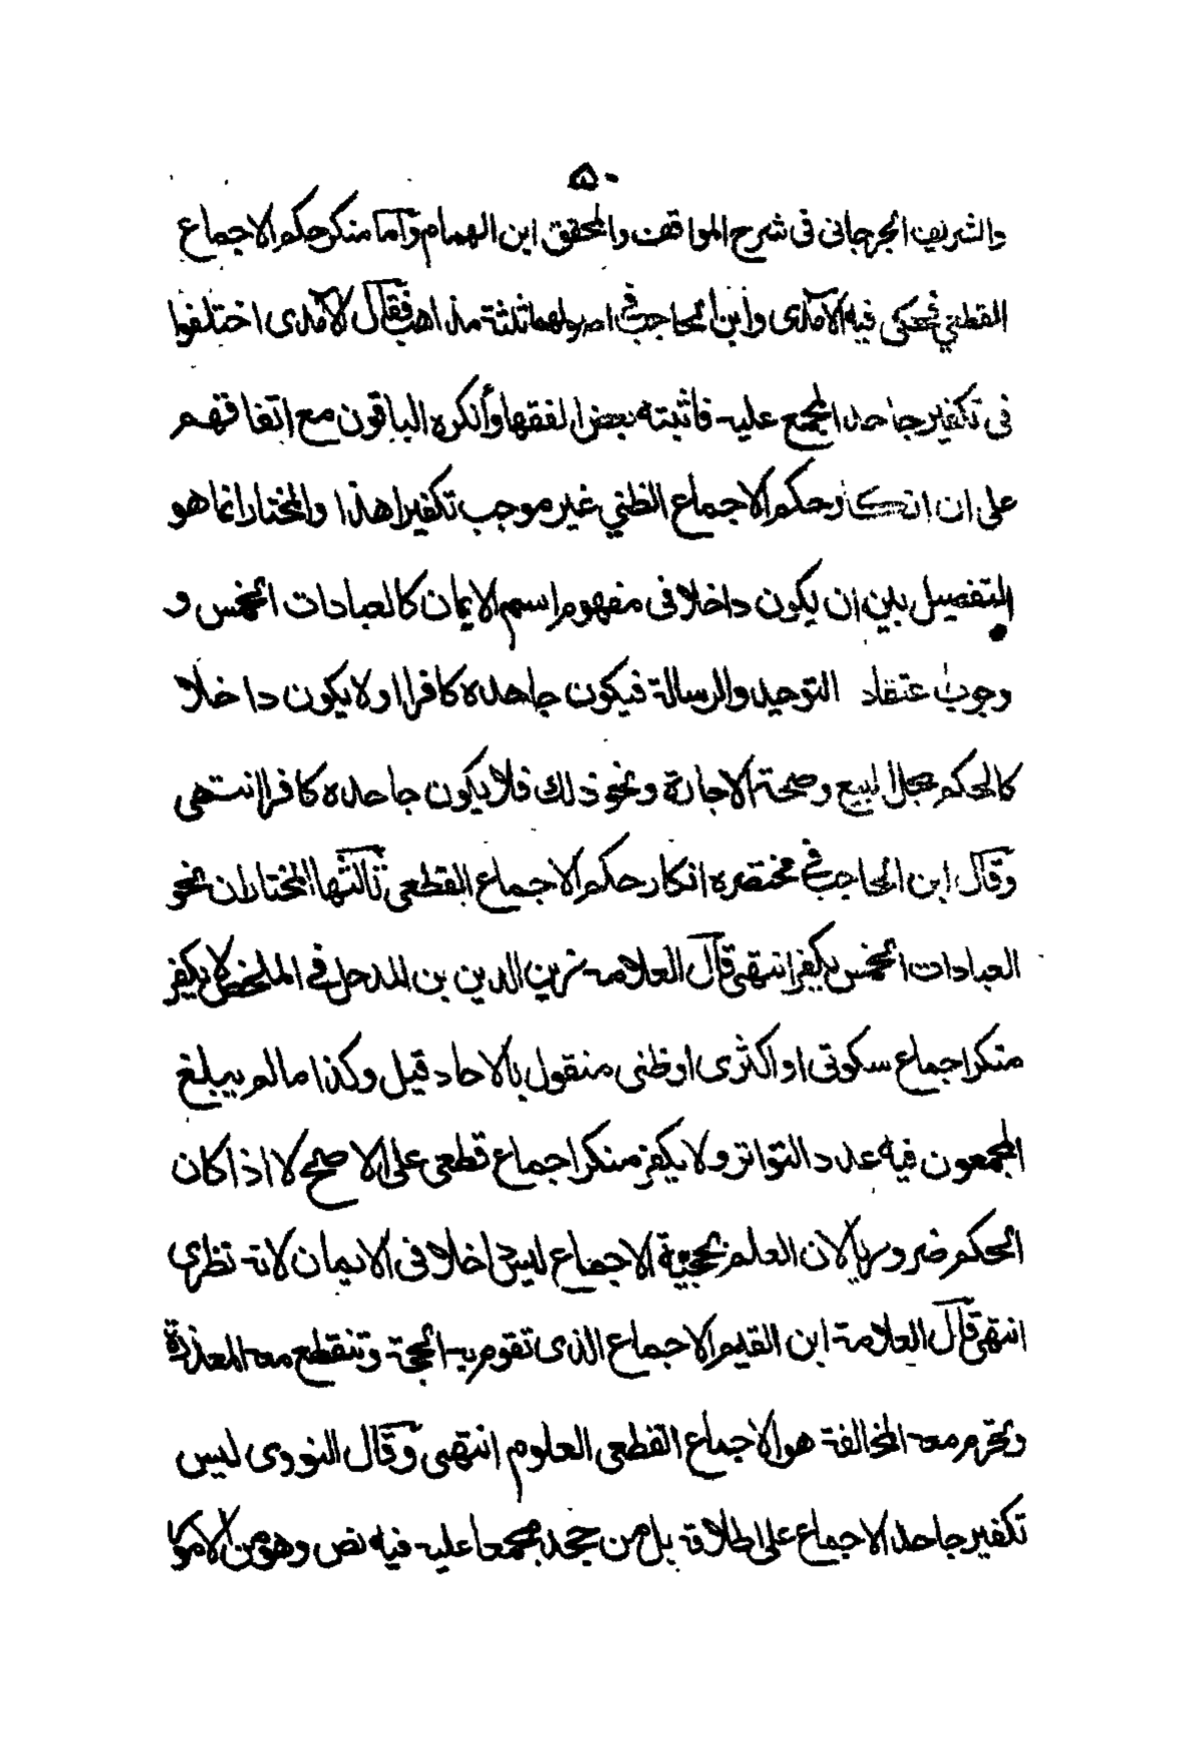 ۵۰
والشريف الجرجانى فى شرح المواقف والمحقق ابن الهمام وآما منكر حكم الاجماع
القطعي فحكى فيه الآمدى وابن الحاجب في اصولهما ثلثة مذاهب فقال الآمدى اختلفوا
فى تكفير جاحد المجمع عليه فاثبته بعض الفقها وأنكره الباقون مع اتفاقهم
على ان انكار حكم الاجماع الظني غير موجب تكفيرا هذا والمختار انما هو
التفصيل بين ان يكون داخلا فى مفهوم اسم الايمان كالعبادات الخمس و
وجوب عتقاد التوحيد والرسالة فيكون جاهده كافرا او لا يكون داخلا
كالحكم بحل البيع وصحة الاجارة ونحو ذلك فلا يكون جاحده كافرا انتهى
وقال ابن الحاجب في مختصره انكار حكم الاجماع القطعى ثالثها المختار ان نحو
العبادات الخمس يكفر انتهى قال العلامة زين الدين بن المدحل في الملخص لا يكفر
منكر اجماع سكوتى او اكثرى او ظنى منقول بالاحاد قيل وكذا ما لم يبلغ
المجمعون فيه عدد التواتر ولا يكفر منكر اجماع قطعى على الاصح لا اذا كان
الحكم ضروريا لان العلم بحجية الاجماع ليس داخلا فى الايمان لانه نظرى
انتهى قال العلامة ابن القيم الاجماع الذى تقوم به الحجة وتنقطع معه المعذرة
وتحرم معه المخالفة هو الاجماع القطعى العلوم انتهى وقال النووى ليس
تكفير جاحد الاجماع على اطلاقه بل من جحد مجمعا عليه فيه نص وهو من الامور